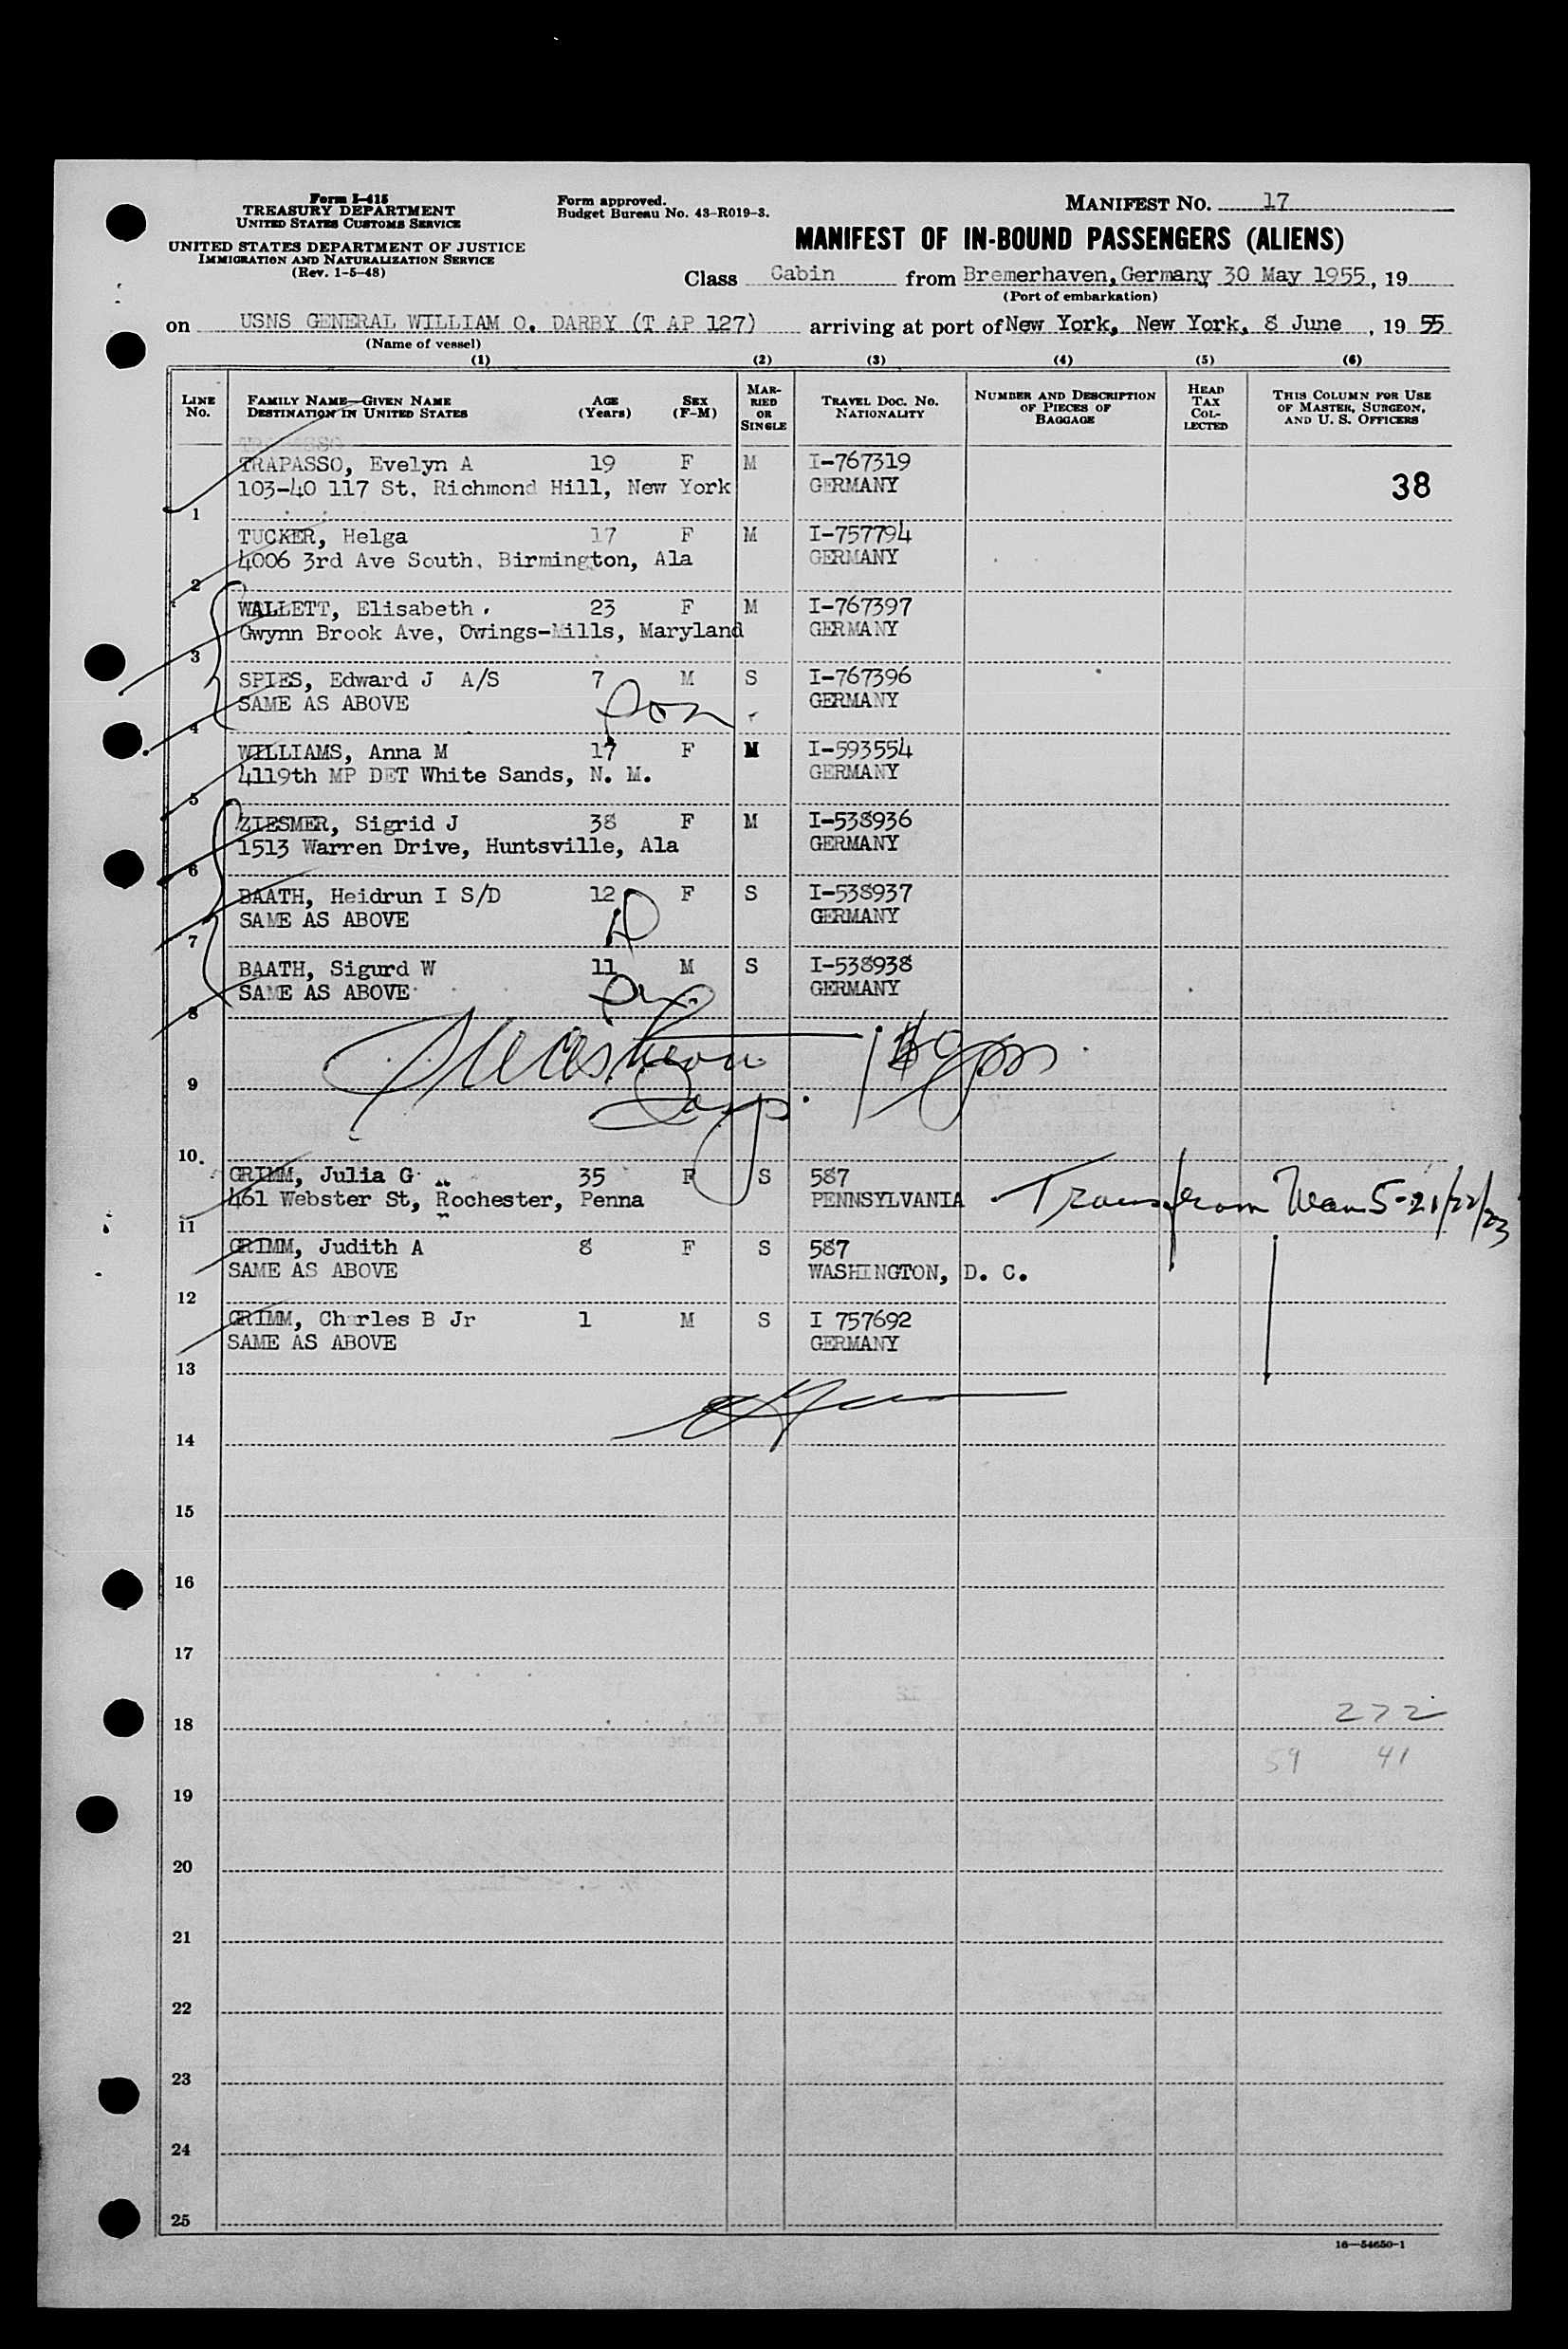 Form I-415
TREASURY DEPARTMENT
UNITED STATES CUSTOMS SERVICE
UNITED STATES DEPARTMENT OF JUSTICE
IMMIGRATION AND NATURALIZATION SERVICE
(Rev. 1-5-48)
Form approved.
Budget Bureau No. 43-R019-3.
MANIFEST NO. 17
MANIFEST OF IN-BOUND PASSENGERS (ALIENS)
Class Cabin from Bremerhaven, Germany 30 May 1955, 19
(Port of embarkation)
on USNS GENERAL WILLIAM O. DARBY (T AP 127) arriving at port of New York, New York, 8 June, 19 55
(Name of vessel)
(1) (2) (3) (4) (5) (6)
LINE NO. FAMILY NAME—GIVEN NAME DESTINATION IN UNITED STATES AGE (Years) SEX (F-M) MARRIED OR SINGLE TRAVEL DOC. NO. NATIONALITY NUMBER AND DESCRIPTION OF PIECES OF BAGGAGE HEAD TAX COLLECTED THIS COLUMN FOR USE OF MASTER, SURGEON, AND U. S. OFFICERS
TRAPASSO, Evelyn A 19 F M I-767319
103-40 117 St, Richmond Hill, New York GERMANY 38
1
TUCKER, Helga 17 F M I-757794
4006 3rd Ave South, Birmington, Ala GERMANY
2
WALLETT, Elisabeth 23 F M I-767397
Gwynn Brook Ave, Owings-Mills, Maryland GERMANY
3
SPIES, Edward J A/S 7 M S I-767396
SAME AS ABOVE son GERMANY
4
WILLIAMS, Anna M 17 F M I-593554
4119th MP DET White Sands, N. M. GERMANY
5
ZIESMER, Sigrid J 38 F M I-538936
1513 Warren Drive, Huntsville, Ala GERMANY
6
BAATH, Heidrun I S/D 12 F S I-538937
SAME AS ABOVE D GERMANY
7
BAATH, Sigurd W 11 M S I-538938
SAME AS ABOVE GERMANY
8
9
10.
GRIMM, Julia G 35 F S 587
461 Webster St, Rochester, Penna PENNSYLVANIA Trans from Man 5-21/22/23
11
GRIMM, Judith A 8 F S 587
SAME AS ABOVE WASHINGTON, D. C.
12
GRIMM, Charles B Jr 1 M S I 757692
SAME AS ABOVE GERMANY
13
14
15
16
17
18 272
59 41
19
20
21
22
23
24
25
16—54650-1